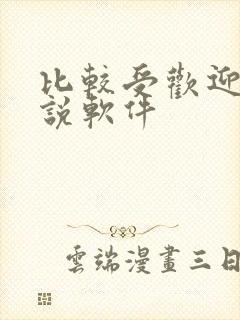 比較受歡迎
說軟件
雲端漫畫三日